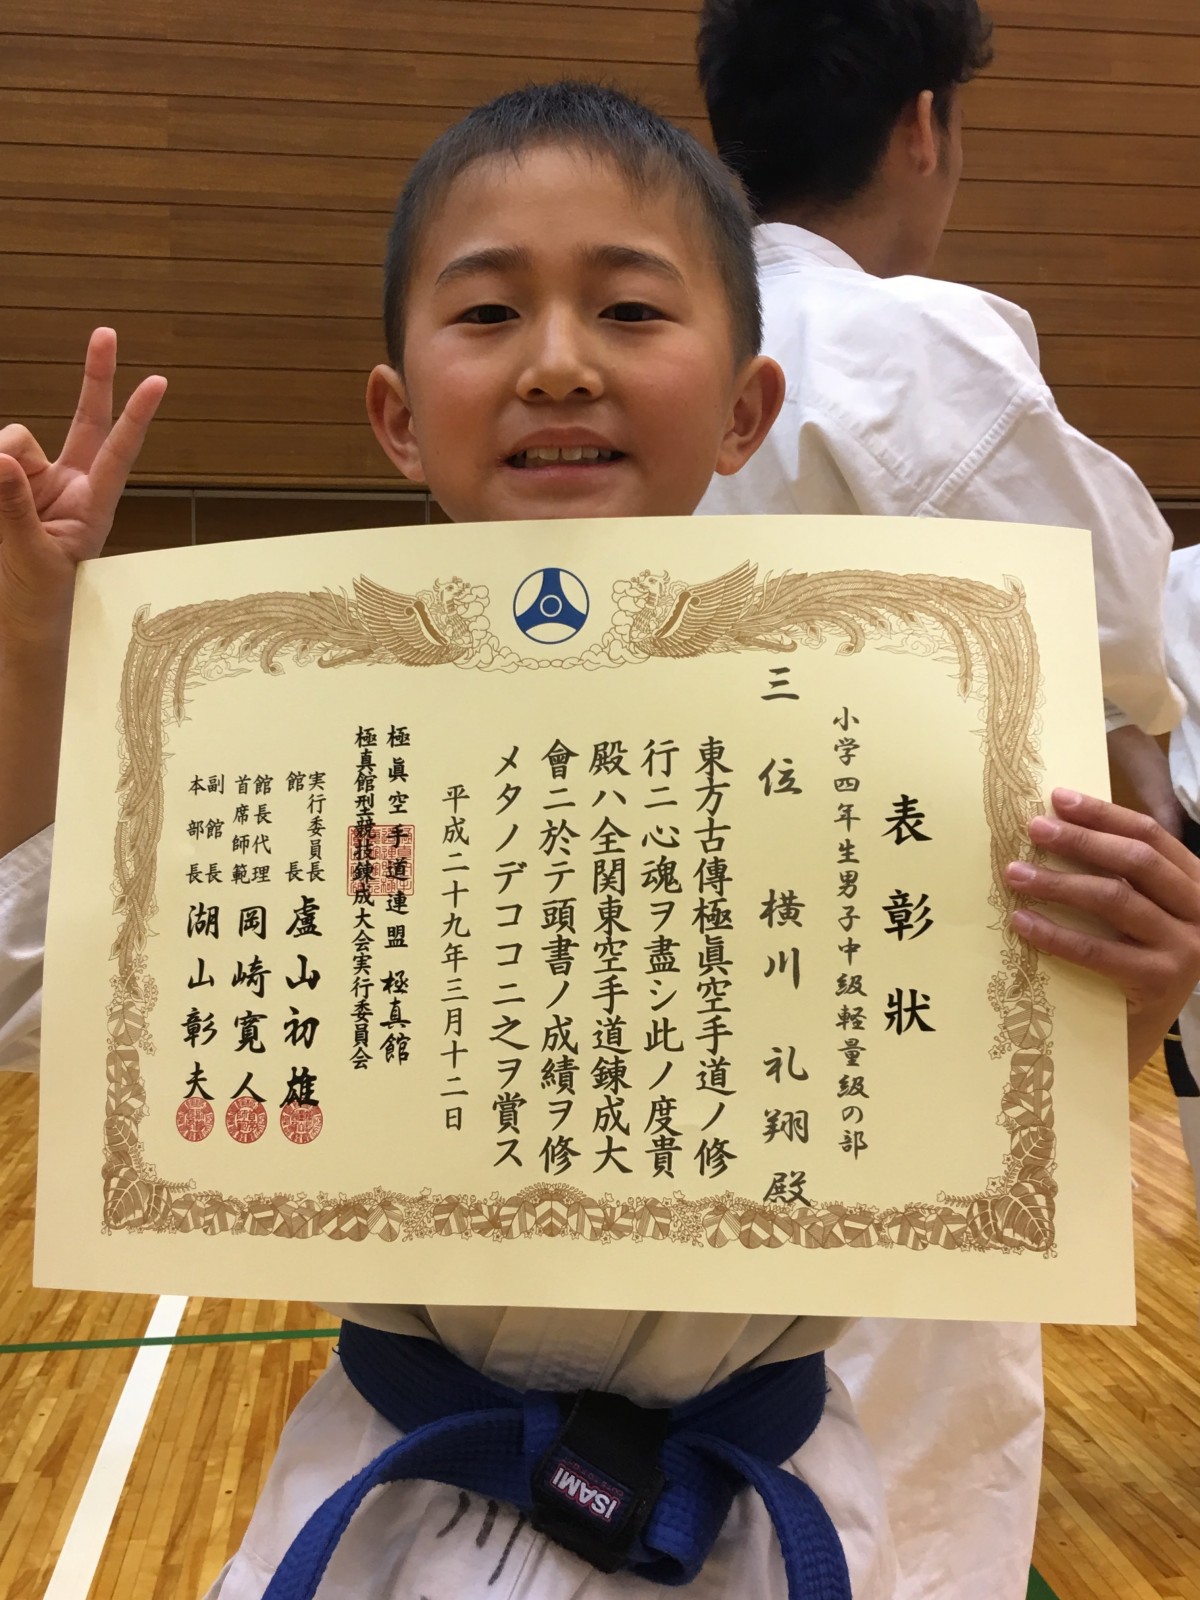 表彰狀
小学四年生男子中級軽量級の部
三位 横川 礼翔 殿
東方古傳極眞空手道ノ修
行ニ心魂ヲ盡シ此ノ度貴
殿ハ全関東空手道錬成大
會ニ於テ頭書ノ成績ヲ修
メタノデココニ之ヲ賞ス
平成二十九年三月十二日
極眞空手道連盟 極真館
極真館型競技錬成大会実行委員会
実行委員長
館長 盧山初雄
館長代理
首席師範 岡崎寛人
副館長
本部長 湖山彰夫
ISAMI
川